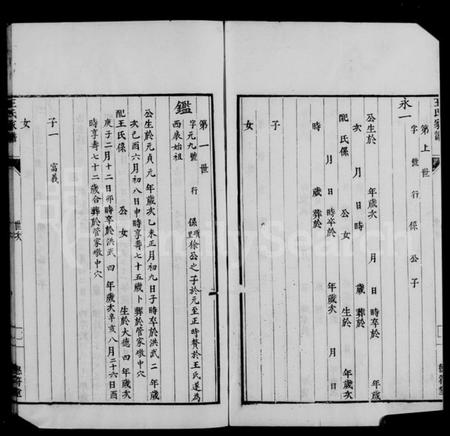 王氏家譜
第上世
永一
字 世 行 保 公子
公生於 年歲次 月 日 時卒於 年
次 月 日時 歲 葬於
配 保 公女 生於 年歲次
月 日時卒於 年歲次 月 日
時 歲 葬於
子
女
第一世
鑑
字元九號 行 保 項里徐公之子於元至正時贅於王氏遂為
西來始祖
公生於元貞元年歲次乙未正月初九日子時卒於洪武二年歲
次己酉六月初八日申時享壽七十五歲卜葬於管家墩中穴
配王氏保 公女 生於大德四年歲次
庚子二月十二日卯時卒於洪武四年歲次辛亥八月二十六日酉
時享壽七十二歲合葬於管家墩中穴
子一 富義
女
王氏家譜
世次